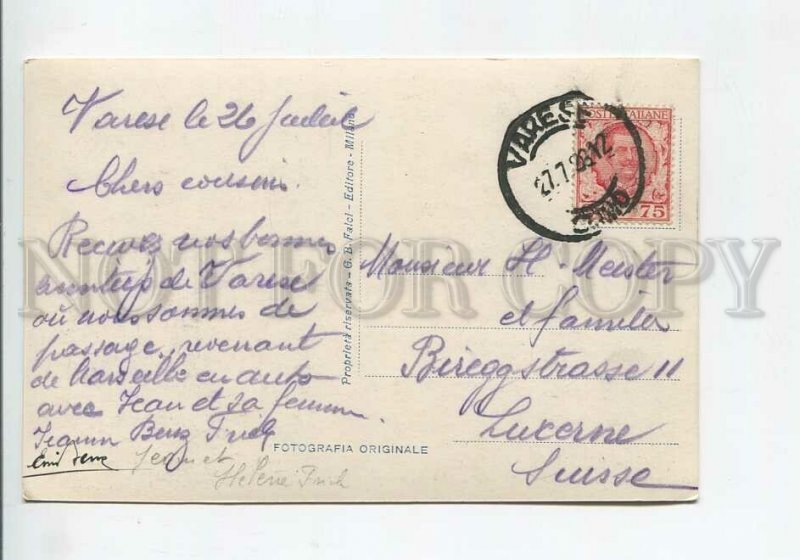 Varese le 26 Juillet
Chers cousins.
Recevez nos bonnes
amitiés de Varese
où nous sommes de
passage, revenant
de Marseille en auto
avec Jean et sa femme
Benz
Jean et
Hélène
VARESE
27.7.
COMO
POSTE ITALIANE
75
Proprietà riservata - G. B. Falci - Editore - Milano
FOTOGRAFIA ORIGINALE
Monsieur H. Meister
et famille
Bireggstrasse 11
Luzerne
Suisse
NOT FOR COPY